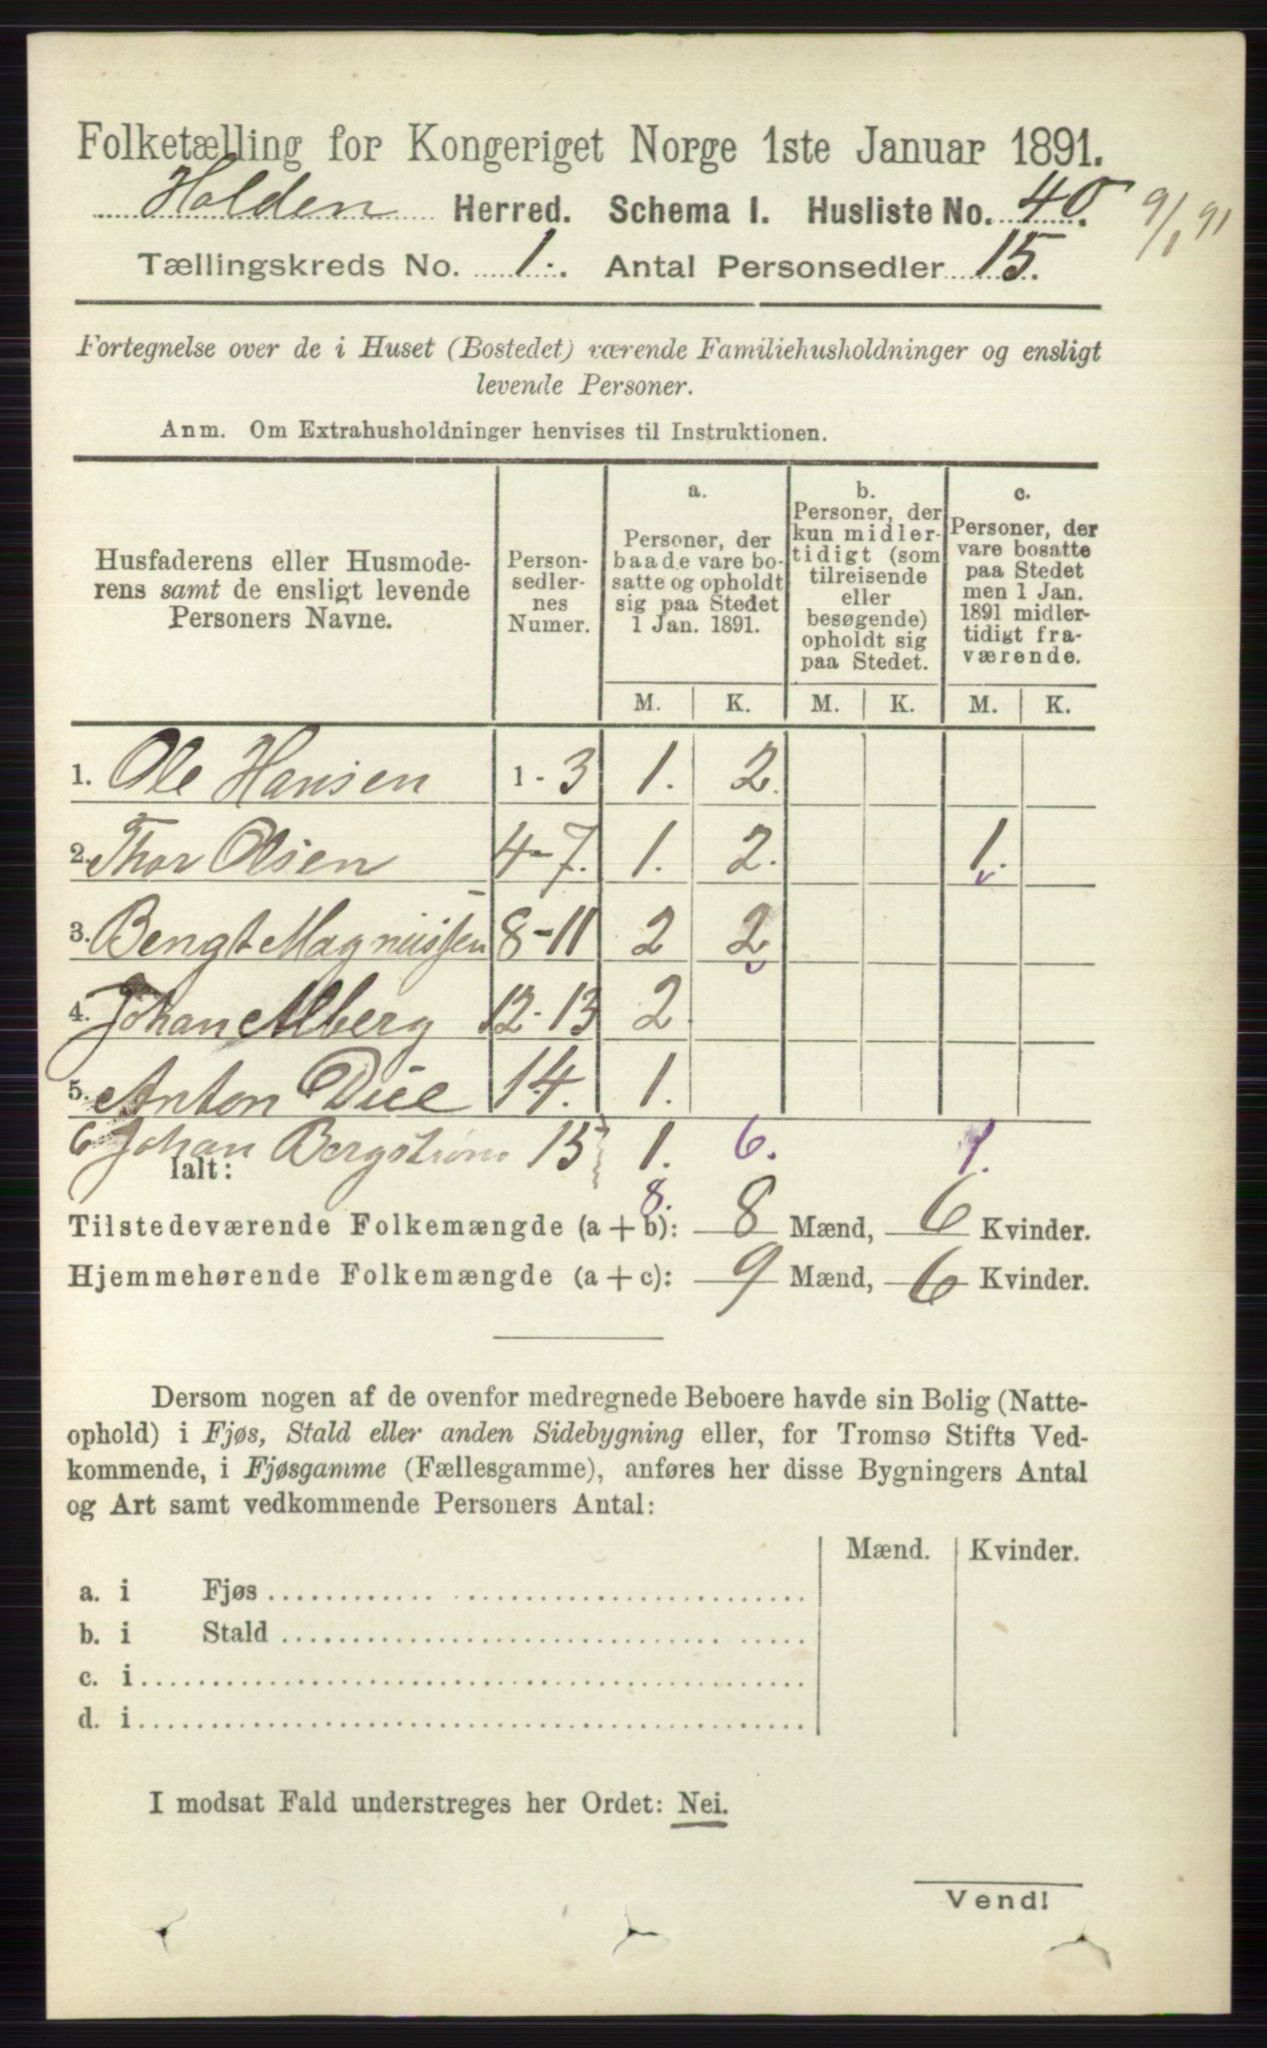 Folketælling for Kongeriget Norge 1ste Januar 1891.
Holden Herred. Schema I. Husliste No. 40. 9/1 91
Tællingskreds No. 1. Antal Personsedler 15.
Fortegnelse over de i Huset (Bostedet) værende Familiehusholdninger og ensligt
levende Personer.
Anm. Om Extrahusholdninger henvises til Instruktionen.
Husfaderens eller Husmode-
rens samt de ensligt levende
Personers Navne.
Person-
sedler-
nes
Numer.
a.
Personer, der
baade vare bo-
satte og opholdt
sig paa Stedet
1 Jan. 1891.
b.
Personer, der
kun midler-
tidigt (som
tilreisende
eller
besøgende)
opholdt sig
paa Stedet.
c.
Personer, der
vare bosatte
paa Stedet
men 1 Jan.
1891 midler-
tidigt fra-
værende.
M. K. M. K. M. K.
1. Ole Hansen 1 - 3 1. 2.
2. Thor Olsen 4-7. 1. 2. 1.
3. Bengt Magnussen 8-11 2 2
4. Johan Alberg 12-13 2
5. Anton Die 14. 1.
6 Johan Bergstrøm 15 1. 6. 1.
Ialt:
8.
Tilstedeværende Folkemængde (a + b): 8 Mænd, 6 Kvinder.
Hjemmehørende Folkemængde (a + c): 9 Mænd, 6 Kvinder.
Dersom nogen af de ovenfor medregnede Beboere havde sin Bolig (Natte-
ophold) i Fjøs, Stald eller anden Sidebygning eller, for Tromsø Stifts Ved-
kommende, i Fjøsgamme (Fællesgamme), anføres her disse Bygningers Antal
og Art samt vedkommende Personers Antal:
Mænd. Kvinder.
a. i Fjøs
b. i Stald
c. i
d. i
I modsat Fald understreges her Ordet: Nei.
Vend!